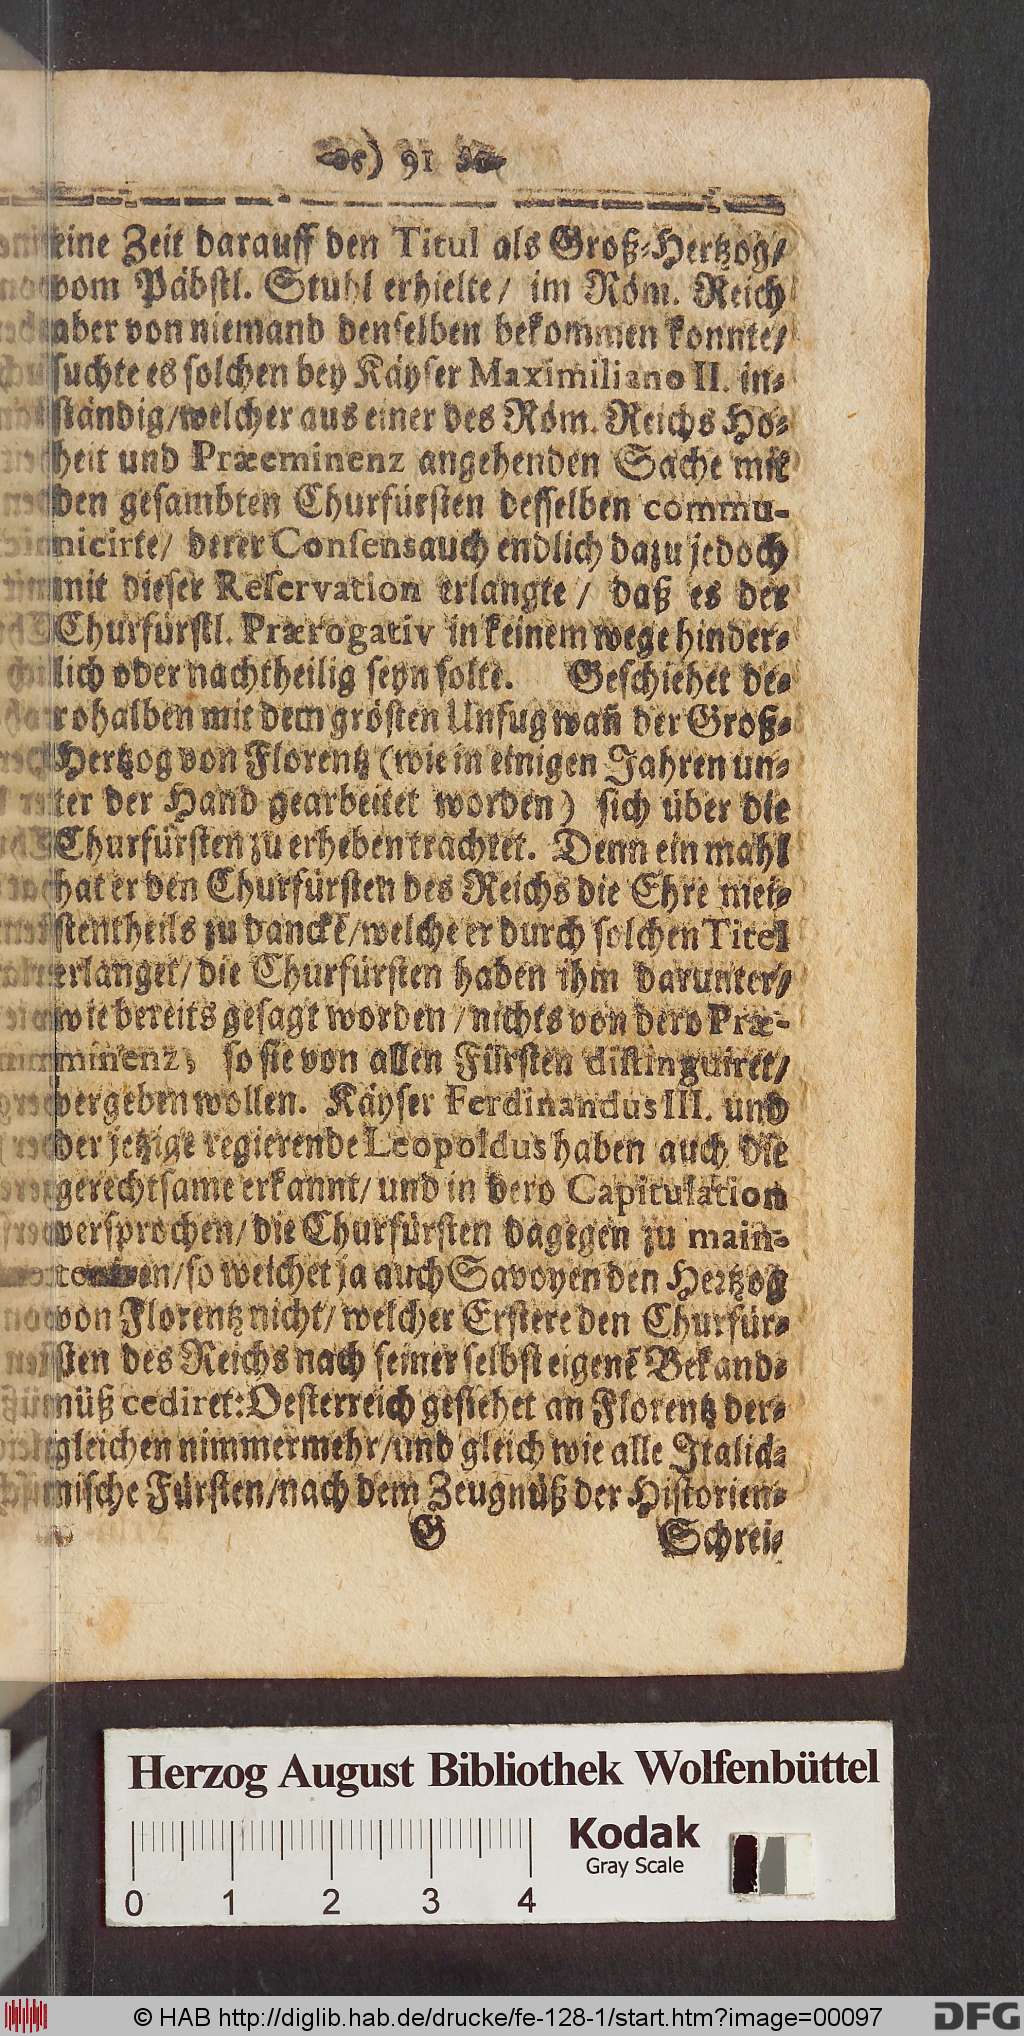 ) 91
eine Zeit darauff den Titul als Groß-Hertzog/
vom Päbstl. Stuhl erhielte/ im Röm. Reich
aber von niemand denselben bekommen konnte/
suchte es solchen bey Käyser Maximiliano II. in-
ständig/welcher aus einer des Röm. Reichs Ho-
heit und Præeminenz angehenden Sache mit
den gesambten Churfürsten desselben commu-
nicirte/ derer Consens auch endlich dazu jedoch
mit dieser Reservation erlangte/ daß es der
Churfürstl. Prærogativ in keinem wege hinder-
lich oder nachtheilig seyn solte. Geschiehet de-
rohalben mit dem grösten Unfug wañ der Groß-
Hertzog von Florentz (wie in einigen Jahren un-
ter der Hand gearbeitet worden) sich über die
Churfürsten zu erheben trachtet. Denn ein mahl
hat er den Churfürsten des Reichs die Ehre mei-
stentheils zu danckē/welche er durch solchen Titel
erlanget/die Churfürsten haben ihm darunter/
wie bereits gesagt worden/nichts von dero Præ-
minenz, so sie von allen Fürsten distinguiret/
vergeben wollen. Käyser Ferdinandus III. und
der jetzige regierende Leopoldus haben auch die
gerechtsame erkannt/und in dero Capitulation
versprochen/die Churfürsten dagegen zu main-
teniren/so weichet ja auch Savoyen den Hertzog
von Florentz nicht/welcher Erstere den Churfür-
sten des Reichs nach seiner selbst eigenē Bekand-
nüß cediret: Oesterreich gestehet an Florentz der-
gleichen nimmermehr/und gleich wie alle Italiä-
nische Fürsten/nach dem Zeugnüß der Historien-
G Schrei-
Herzog August Bibliothek Wolfenbüttel
Kodak
Gray Scale
0 1 2 3 4
© HAB http://diglib.hab.de/drucke/fe-128-1/start.htm?image=00097
DFG